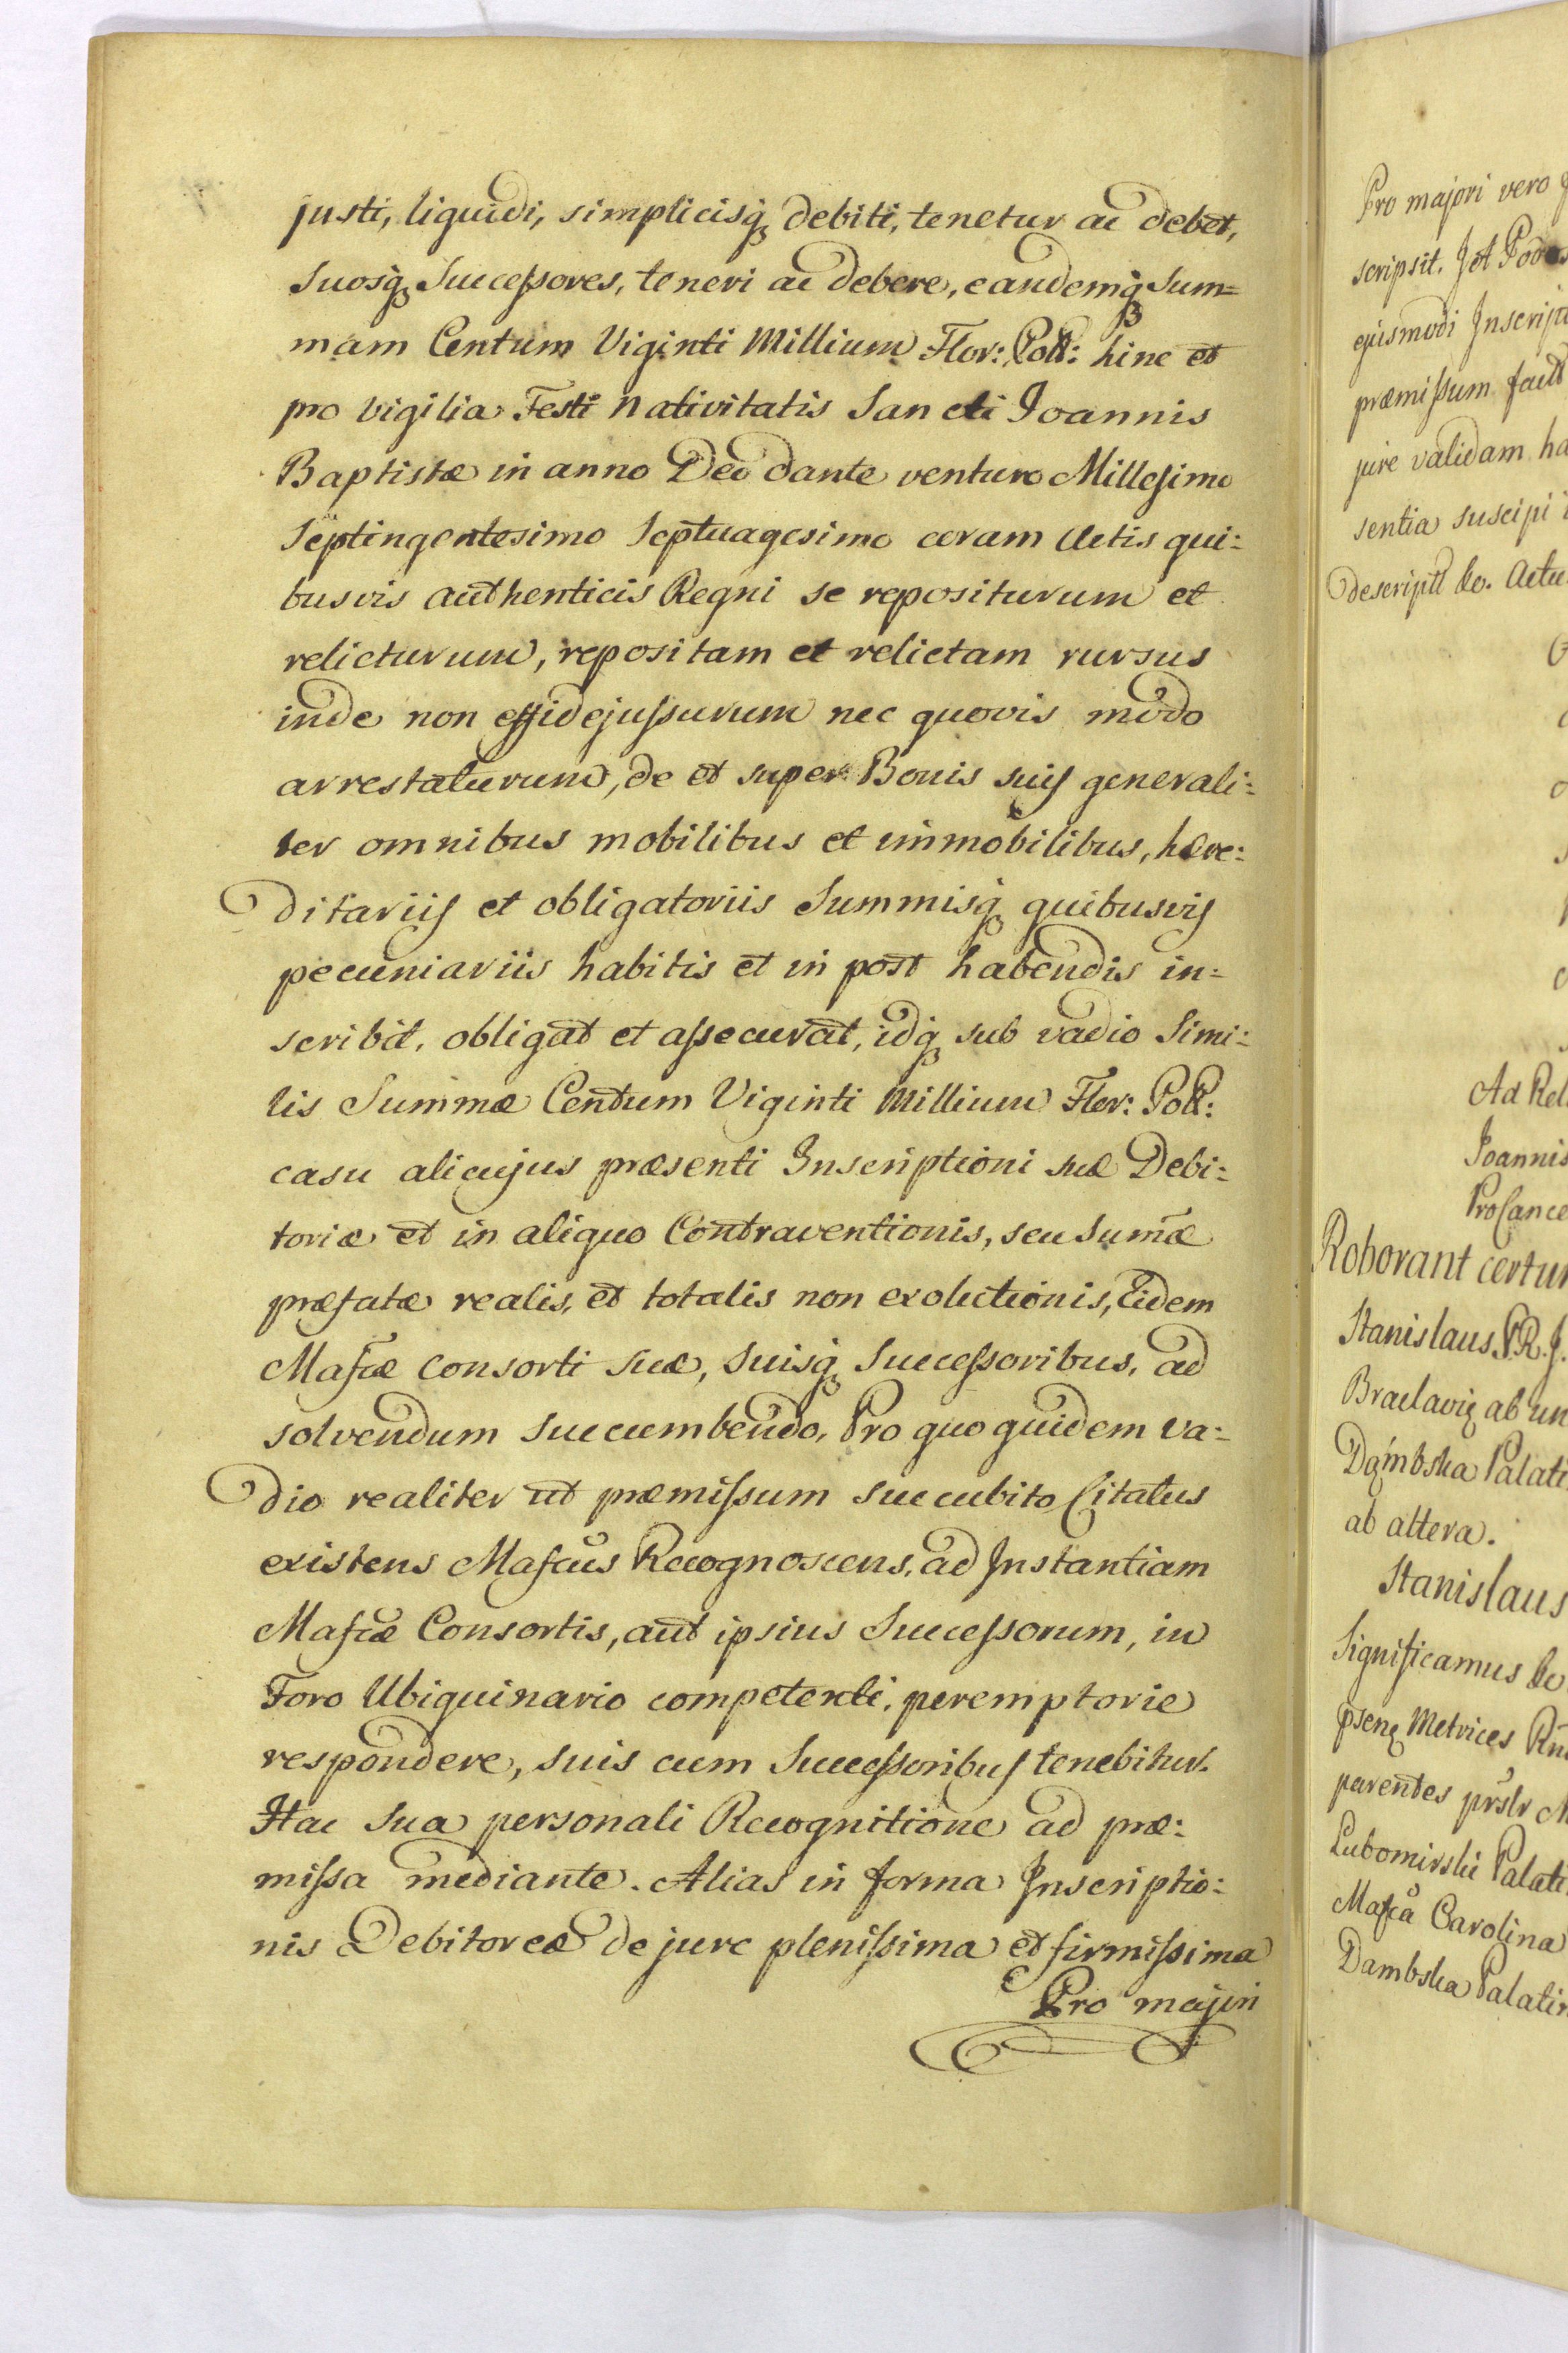 justi, liquidi, simplicisq́ʒ debiti, tenetur ac debet,
Suosq́ʒ Succeſsores, teneri ac debere, eandemq́ʒ Sum=
mam Centum Viginti Millium Flor: Poll: hinc et
pro vigilia Festi Nativitatis Sancti Joannis
Baptistæ in anno Deo dante venturo Millesimo
Septingentesimo Septuagesimo coram Actis qui:
busvis authenticis Regni se repositurum et
relicturum, repositam et relictam rursus
inde non effidejuſsurum nec quovis modo
arrestaturum, de et super Bonis suis generali:
ter omnibus mobilibus et immobilibus, hære:
ditariis et obligatoriis Summisq́ʒ quibusvis
pecuniariis habitis et in post habendis in=
scribit, obligat et aſsecurat, idq́ʒ sub vadio Simi:
lis Summæ Centum Viginti Millium Flor: Poll:
casu alicujus præsenti Inscriptioni suæ Debi:
toriæ et in aliquo Contraventionis, seu Sum̃æ
præfatæ realis, et totalis non exolutionis, Eidem
Mafcæ Consorti suæ, Suisq́ʒ Succeſsoribus, ad
solvendum succumbendo, Pro quo quidem va:
dio realiter ut præmiſsum succubito Citatus
existens Mafcus Recognoscens, ad Instantiam
Mafcæ Consortis, aut ipsius Succeſsorum, in
Foro Ubiquinario competenti, peremptorie
respondere, suis cum Succeſsoribus tenebitur.
Hac Sua personali Recognitione ad præ:
miſsa mediante. Alias in forma Inscriptio:
nis Debitoreæ de jure pleniſsima et firmiſsima
Pro majori
Pro majori vero
scripsit. Jet
ejusmodi
præmiſsum
jure validam
sentia suscipi
descriptt &c.
Ad
Joannis
Roborant
Stanislaus
Braclaviæ ab
Dąmbska
ab altera.
Stanislaus
Significamus &c
Metrices
parentes
Lubomirski
Mafca Carolina
Dambska